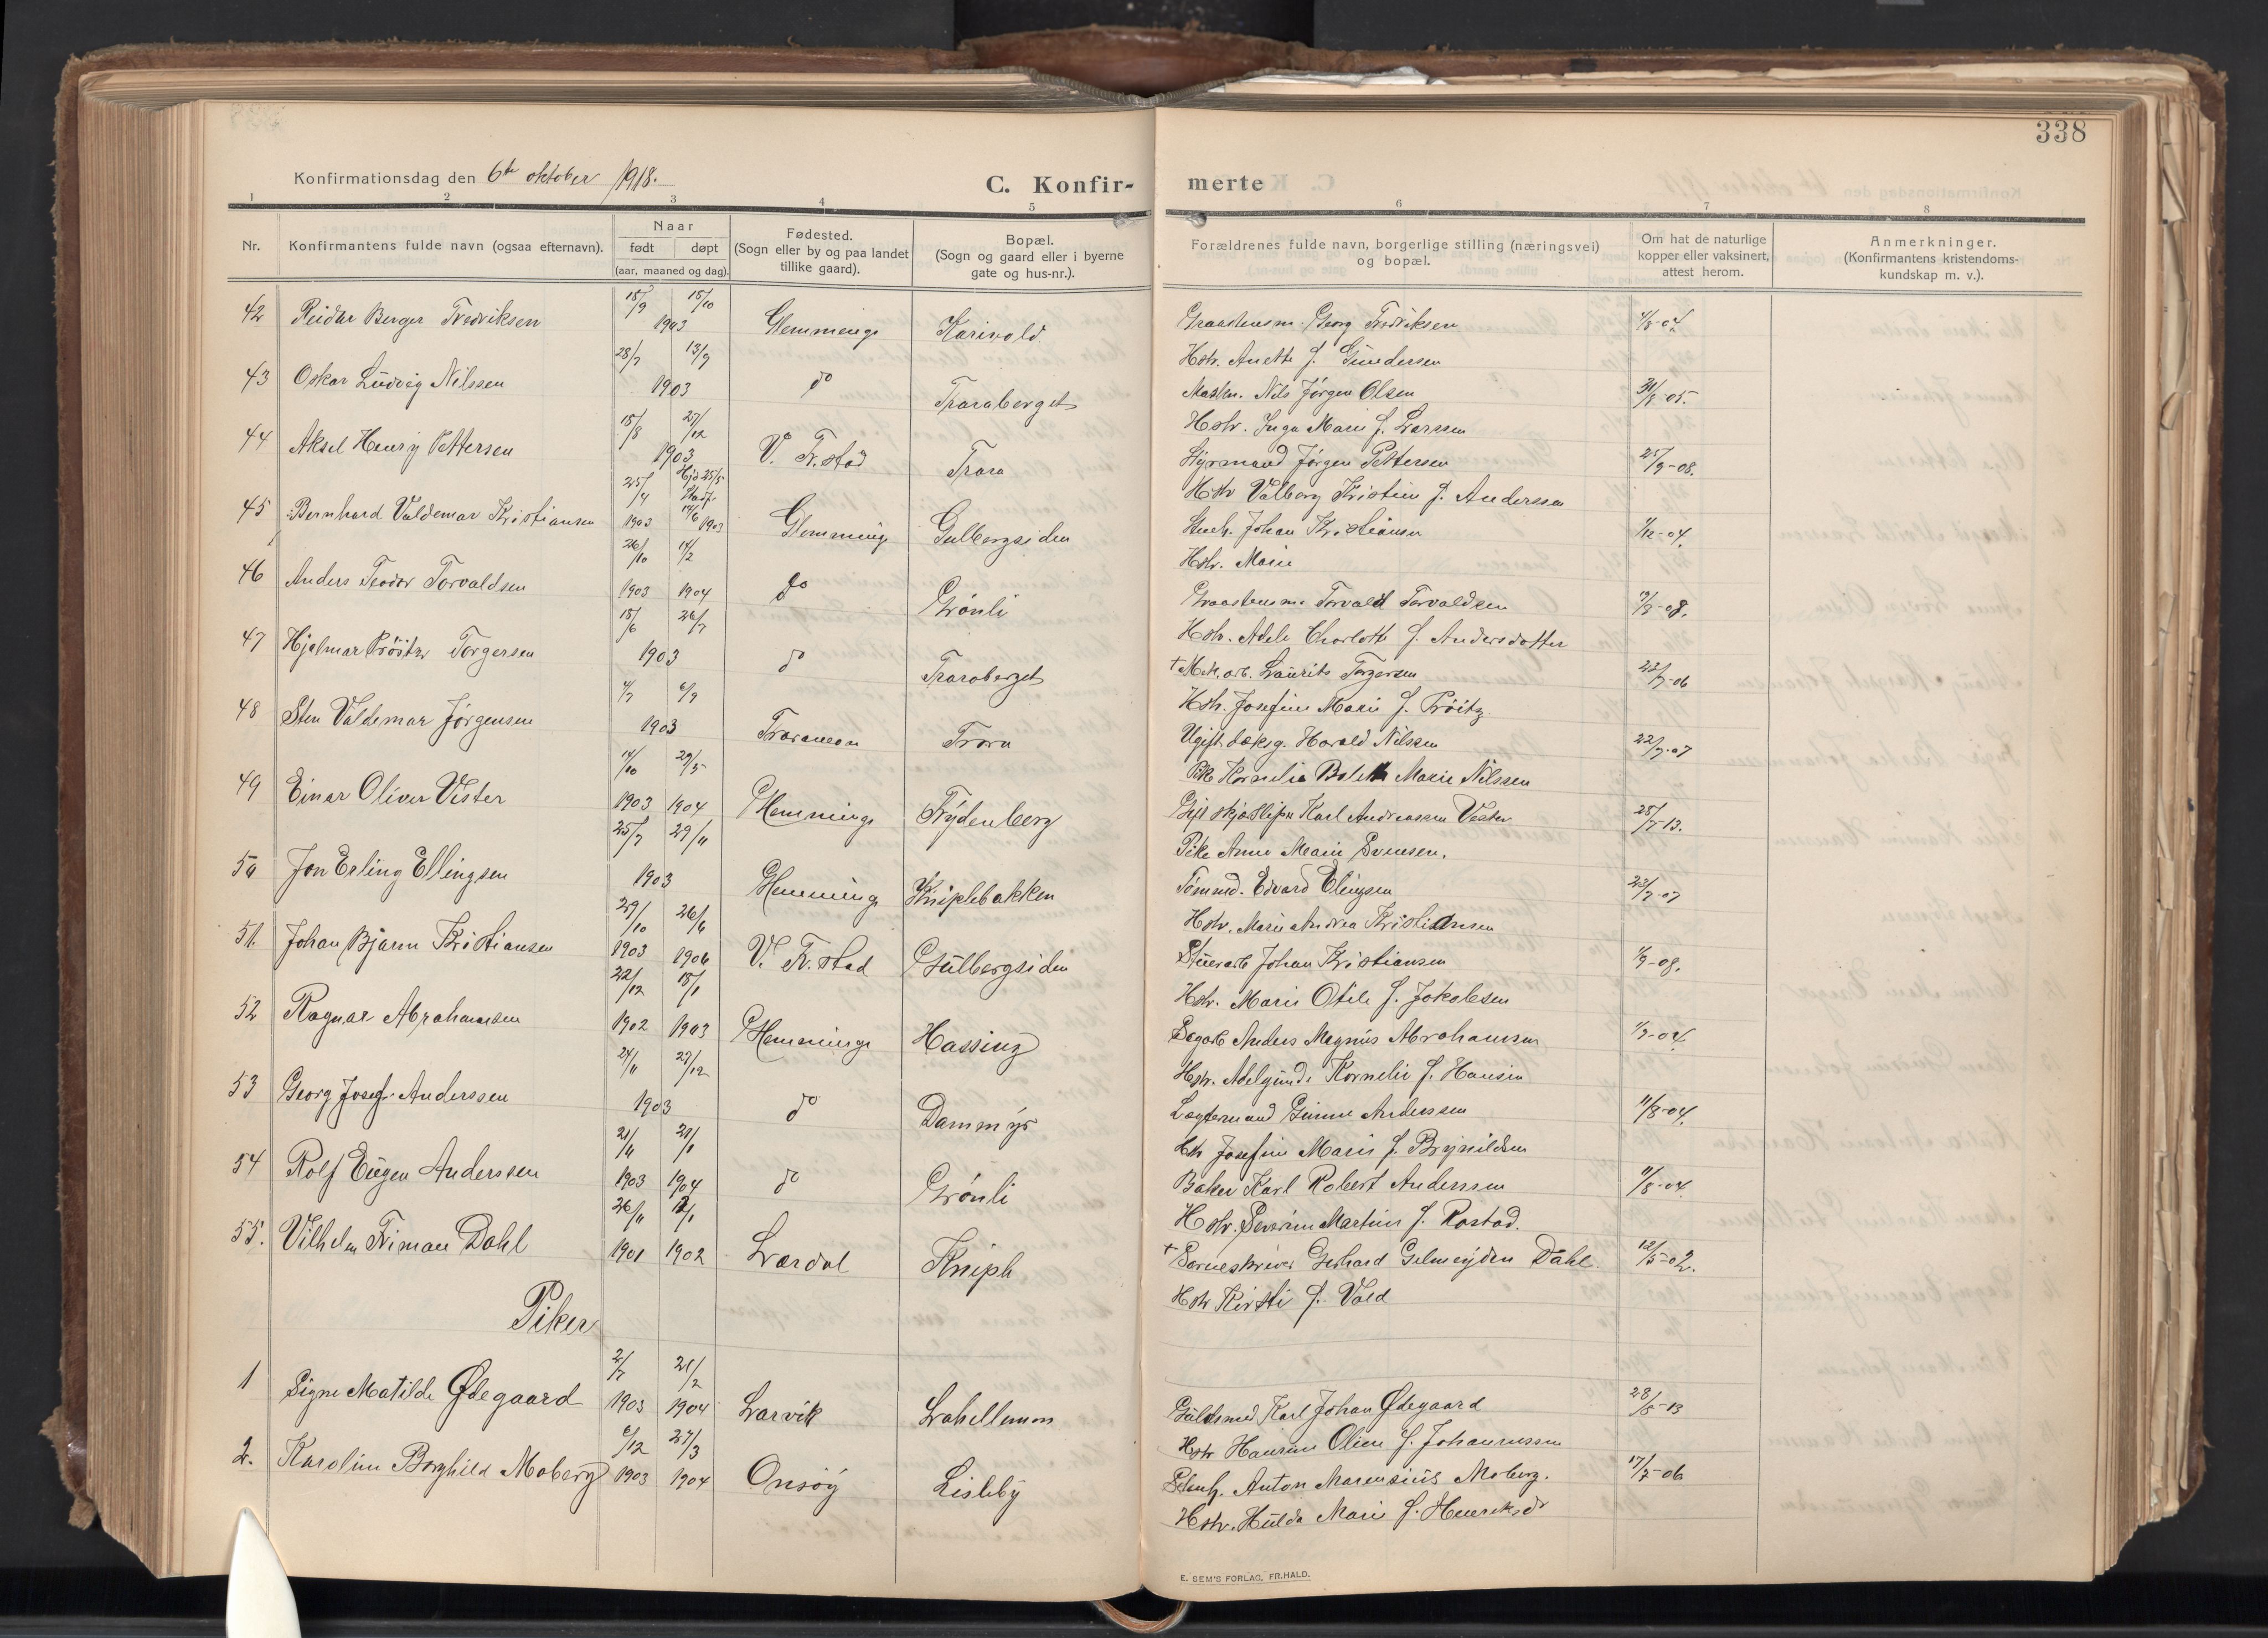 338
Konfirmationsdag den 6te oktober 1918.
C. Konfir-
merte
1 2 3 4 5 6 7 8
Nr.
Konfirmantens fulde navn (ogsaa efternavn).
Naar
født døpt
(aar, maaned og dag).
Fødested.
(Sogn eller by og paa landet
tillike gaard).
Bopæl.
(Sogn og gaard eller i byerne
gate og hus-nr.).
Forældrenes fulde navn, borgerlige stilling (næringsvei)
og bopæl.
Om hat de naturlige
kopper eller vaksinert,
attest herom.
Anmerkninger.
(Konfirmantens kristendoms-
kundskap m. v.).
42 Reidar Berger Fredriksen 18/9 18/10 1903 Glemminge Karivold Graastensm. Georg Fredriksen
Hstr. Anette f. Gundersen
43 Oskar Ludvig Nilssen 28/7 13/9 1903 do Traraberget Maskn. Nils Jørgen Olsen 31/8-05.
Hstr. Inga Marie f. Larssen
44 Aksel Henry Pettersen 18/8 27/12 1903 V. Fr.stad Trara Styrmand Jørgen Pettersen 25/9-08.
Hstr Valborg Kristine f. Anderssen
45 Bernhard Valdemar Kristiansen 25/4 1903 Hjd 25/5 Stadf. 14/6 1903 Glemminge Gulbergsiden Stuch. Johan Kristiansen 1/12-04.
Hstr. Marie
46 Anders Teodor Torvaldsen 26/10 1903 14/2 1904 do Grønli Graastensm. Torvald Torvaldsen
Hstr. Adele Charlotte f. Andersdotter
47 Hjalmar Prøitz Torgersen 18/6 26/7 1903 do Traraberget † Mek. arb. Laurits Torgersen 23/7-06
Hstr. Josefine Marie f. Prøitz.
48 Sten Valdemar Jørgensen 1903 Traramoen Trara Ugift Harald Nilssen 22/7-07
Pike Kornelia Bolette Marie Nilssen
49 Einar Oliver Vister 14/10 1903 29/5 1904 Glemminge Frydenberg Gift Karl Andreassen Vester 28/7-13.
Pike Anne Marie Svensen.
50 Jon Erling Ellingsen 25/7 29/11 1903 Glemminge Kniplebakken Tømmd. Edvard Elingsen 23/7-07
Hstr. Marie Andrea Kristiansen
51. Johan Bjarne Kristiansen 29/10 1903 26/6 1904 V. Fr.stad Gulbergsiden Stuerarb Johan Kristiansen 1/9-08.
Hstr. Marie Otile f. Jakobsen
52 Ragnar Abrahamsen 22/12 1902 18/1 1903 Glemminge Hassing Sagarb Anders Magnus Abrahamsen 1/9-04.
Hstr. Adelgunde Kornelie f. Hansen
53 Georg Josef Anderssen 24/11 27/12 1903 do Dammyr Løgtermand Gunne Anderssen 11/8-04.
Hstr Josefine Marie f. Brynildsen
54 Rolf Eugen Anderssen 21/11 1903 1904 do Grønli Baker Karl Robert Anderssen 11/8-04.
Hstr. Severine Martine f. Rostad.
55. Vilhelm Friman Dahl 26/11 1901 1902 Lærdal Kniple † Sorenskriver Gerhard Gelmeyden Dahl. 12/5-02.
Hstr Kirsti f. Vold
Piker
1 Signe Matilde Ødegaard 2/7 1903 21/2 1904 Larvik Lahellemoen Guldsmed Karl Johan Ødegaard 28/5-13
Hstr Hansine Oline f. Johannessen
2. Karoline Borghild Moberg 6/12 1903 27/3 1904 Onsøy Lisleby Stenh. Anton Marensius Moberg. 17/7-06
Hstr. Hulda Marie f. Henriksdr
E. SEM'S FORLAG, FR.HALD.